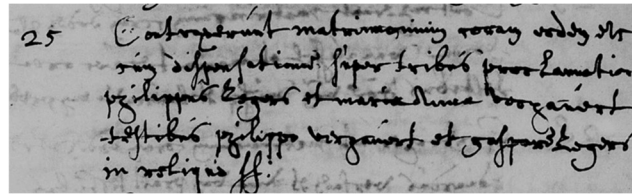 25 Contraxerunt matrimonium coram eodem etc
cum dispensatione super tribus proclamation
philippus Legers et maria Anna verhavert
testibus philippo verhavert et gaspare Legers
in reliquo ff: